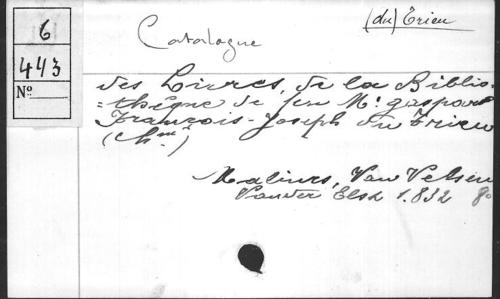 6
443
No
(du) Trieu
Catalogue
des Livres, de la Biblio-
=thèque de feu Mr. gaspard
François-Joseph du Trieu
(Chler)
Malines, Van Velsen
Vander Elst 1.832 8o